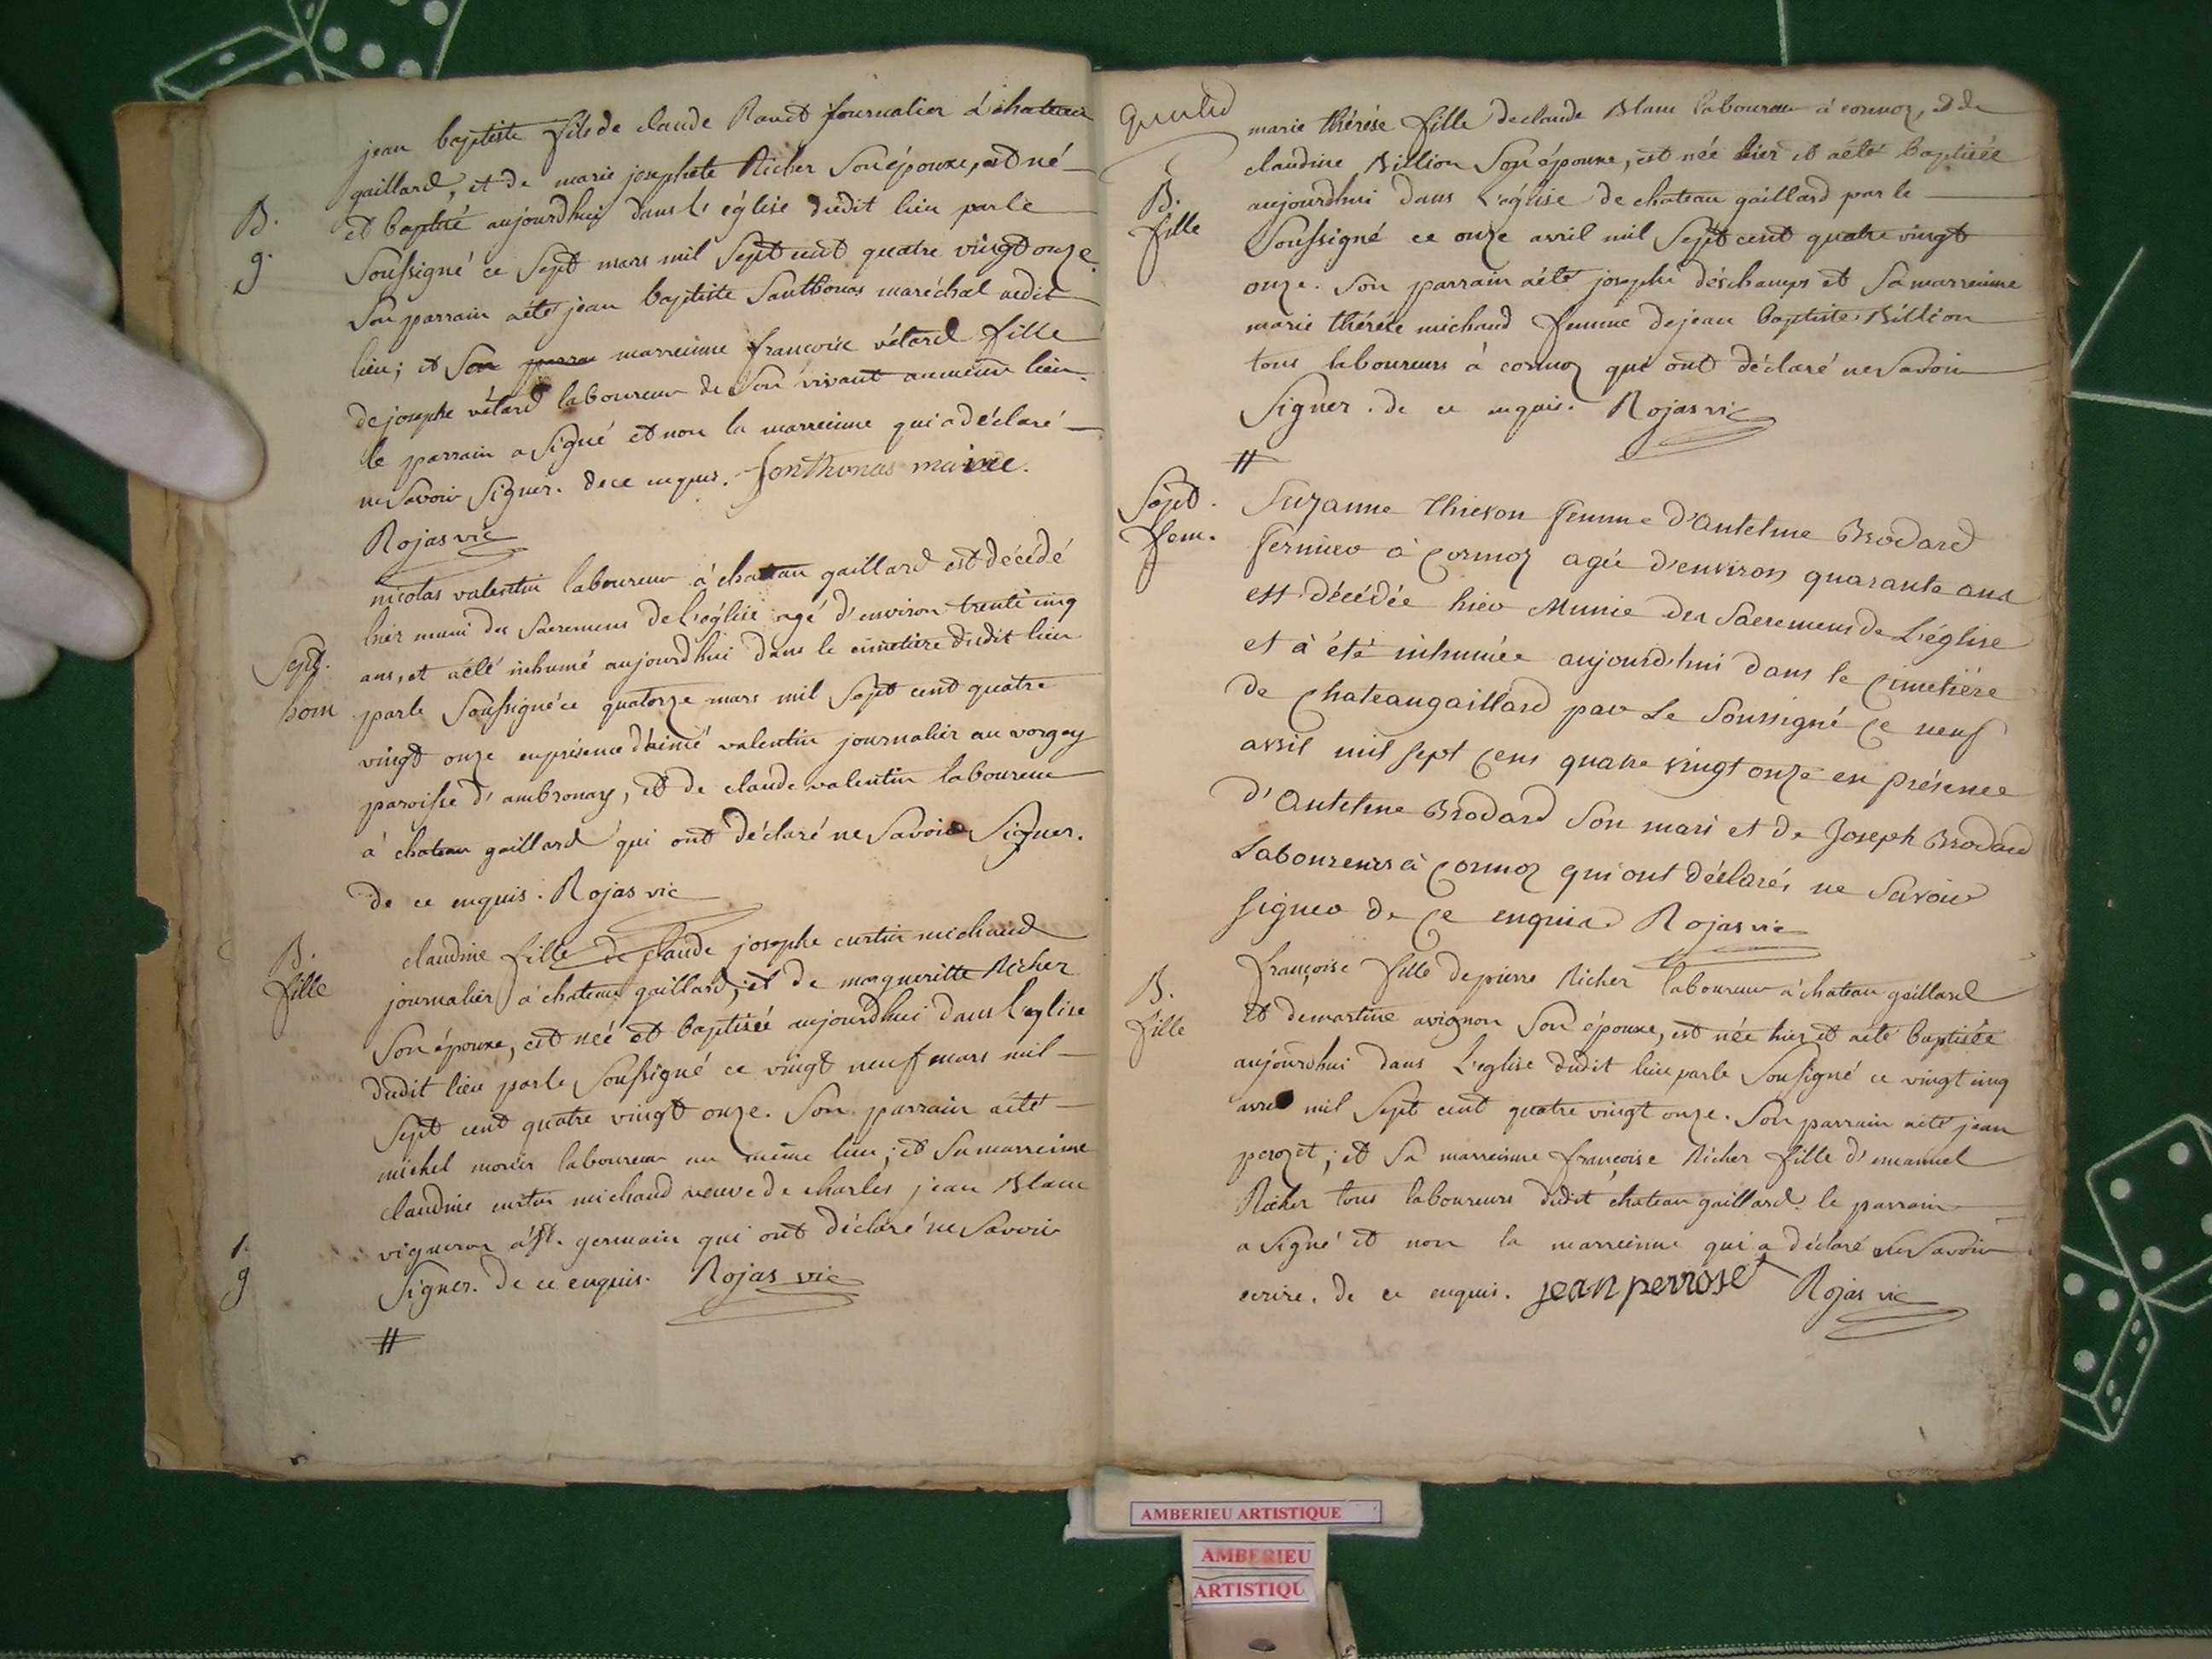 jean baptiste fils de claude Ravet journalier à chateau
gaillard, et de marie josephete Richer son épouse, est né
B.
g.
et baptisé aujourdhui dans l'église dudit lieu par le
soussigné ce sept mars mil sept cent quatre vingt onze.
son parrain a été jean baptiste Santhonas maréchal audit
lieu; et sa marreinne françoise vétard fille
de josephe vétard laboureur de son vivant au meme lieu.
le parrain a signé et non la marreinne qui a déclaré
ne savoir signer. de ce enquis. Sonthonas maire.
Rojas vic
Sept.
hom
nicolas valentin laboureur à chateau gaillard est décédé
hier muni des sacremens de l'église agé d'environ trente cinq
ans, et a été inhumé aujourdhui dans le cimetière dudit lieu
par le soussigné ce quatorze mars mil sept cent quatre
vingt onze en présence d'aimé valentin journalier au vorgey
paroisse d'ambronay, et de claude valentin laboureur
à chateau gaillard qui ont déclaré ne savoir signer.
de ce enquis. Rojas vic
B.
fille
claudine fille de claude josephe curtin michaud
journalier à chateau gaillard, et de margueritte Richer
son épouse, est née et baptisée aujourdhui dans l'église
dudit lieu par le soussigné ce vingt neuf mars mil
sept cent quatre vingt onze. son parrain a été
michel morier laboureur au même lieu; et sa marreinne
claudine curtin michaud veuve de charles jean Blanc
vigneron à st. germain qui ont déclaré ne savoir
signer. de ce enquis. Rojas vic
B.
fille
marie thérèse fille de claude Blanc laboureur à cormoz, et de
claudine Billion son épouse, est née hier et a été baptisée
aujourdhui dans l'église de chateau gaillard par le
soussigné ce onze avril mil sept cent quatre vingt
onze. son parrain a été josephe déschamps et sa marreinne
marie thérése michaud femme de jean baptiste Billion
tous laboureurs à cormoz qui ont déclaré ne savoir
signer. de ce enquis. Rojas vic
Sept.
fem.
Suzanne Thievon femme d'Antelme Brodard
fermier à Cormoz agée d'environ quarante ans
est décédée hier Munie des Sacremens de L'église
et à été inhumée aujourd'hui dans le Cimetière
de Chateaugaillard par Le Soussigné Ce neuf
avril mil sept Cens quatre vingt onze en présence
d'Antelme Brodard Son mari et de Joseph Brodard
Laboureurs à Cormoz qui ont déclarés ne Savoir
signer de Ce enquis Rojas vic
B.
fille
françoise fille de pierre Richer laboureur à chateau gaillard
et de martine avignon son épouse, est née hier et a été baptisée
aujourdhui dans l'eglise dudit lieu par le soussigné ce vingt cinq
avril mil sept cent quatre vingt onze. son parrain a été jean
perozet; et sa marreinne françoise Richer fille d'emanuel
Richer tous laboureurs dudit chateau gaillard. le parrain
a signé et non la marreinne qui a déclaré ne savoir
ecrire. de ce enquis. jean perroset Rojas vic
AMBERIEU ARTISTIQUE
AMBERIEU
ARTISTIQU